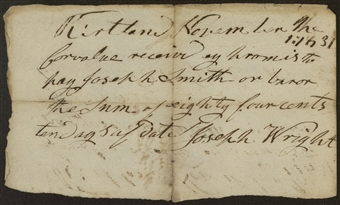 Kirtland November the
17th 31
for value receivd ey promis to
pay Joseph Smith or baror
the Sum of eighty four cents
ten days af date Joseph Wright